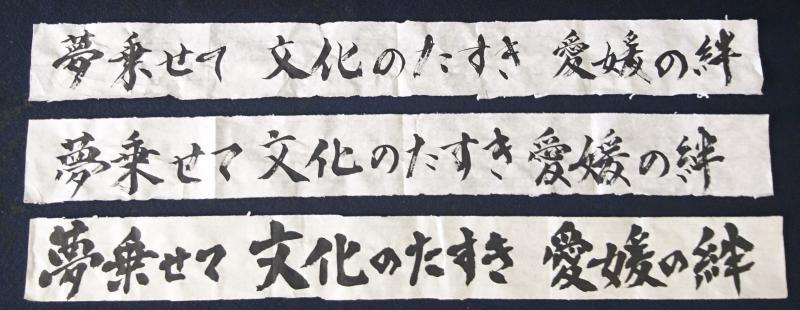 夢乗せて 文化のたすき 愛媛の絆
夢乗せて 文化のたすき 愛媛の絆
夢乗せて 文化のたすき 愛媛の絆